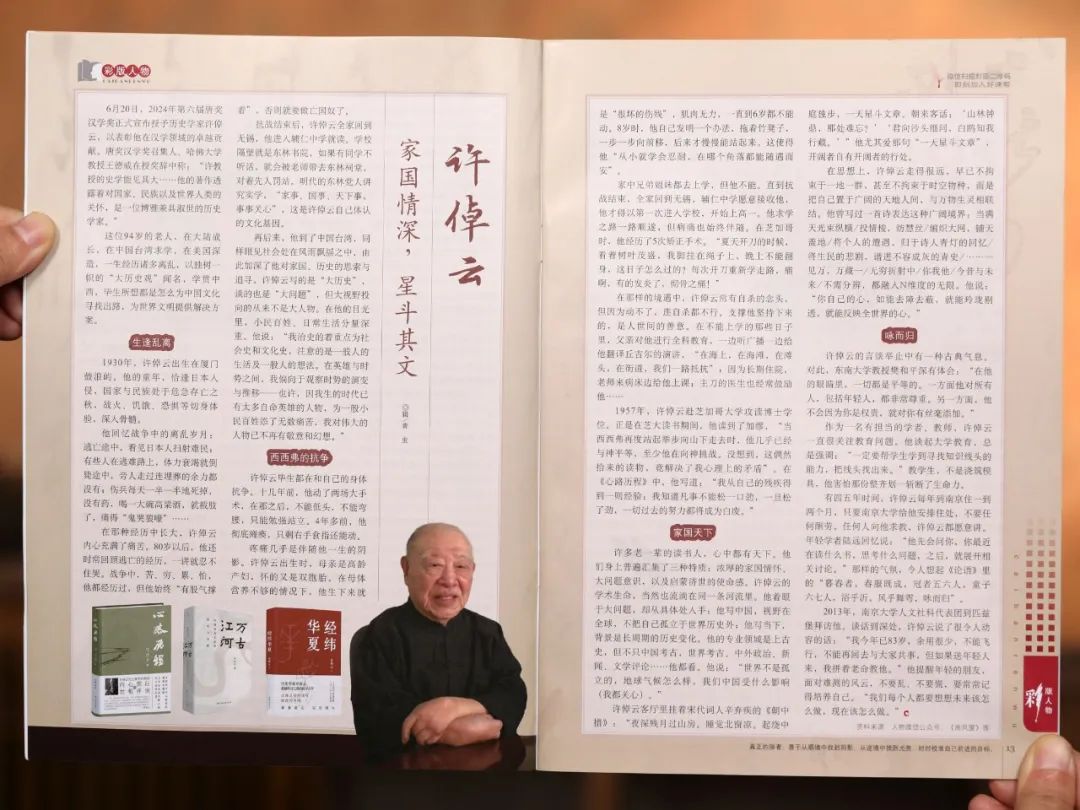 彩版人物
CAIBANRENWU
6月20日，2024年第六届唐奖
汉学奖正式宣布授予历史学家许倬
云，以表彰他在汉学领域的卓越贡
献。唐奖汉学奖召集人、哈佛大学
教授王德威在授奖辞中称：“许教
授的史学能见其大……他的著作透
露着对国家、民族以及世界人类的
关怀，是一位博雅兼具淑世的历史
学家。”
这位94岁的老人，在大陆成
长，在中国台湾求学，在美国深
造，一生经历诸多离乱，以独树一
帜的“大历史观”闻名，学贯中
西，毕生所想都是怎么为中国文化
寻找出路，为世界文明提供解决方
案。
生逢乱离
1930年，许倬云出生在厦门
鼓浪屿。他的童年，恰逢日本人
侵，国家与民族处于危急存亡之
秋，战火、饥饿、恐惧等切身体
验，深入骨髓。
他回忆战争中的离乱岁月：
逃亡途中，看见日本人扫射难民；
有些人在逃难路上，体力衰竭就倒
毙途中，旁人走过连埋葬的余力都
没有；伤兵每天一半一半地死掉，
没有药，喝一大碗高粱酒，就截肢
了，痛得“鬼哭狼嚎”……
在那种经历中长大，许倬云
内心充满了痛苦。80岁以后，他还
时常回顾逃亡的经历，一讲就忍不
住哭。战争中，苦、穷、累、怕，
他都经历过，但他始终“有股气撑
着”，否则就要做亡国奴了。
抗战结束后，许倬云全家回到
无锡，他进入辅仁中学就读。学校
隔壁就是东林书院，如果有同学不
听话，就会被老师带去东林祠堂，
对着先人罚站。明代的东林党人讲
究实学，“家事、国事、天下事，
事事关心”，这是许倬云自己体认
的文化基因。
再后来，他到了中国台湾，同
样眼见社会处在风雨飘摇之中，由
此加深了他对家国、历史的思索与
追寻。许倬云写的是“大历史”，
谈的也是“大问题”，但大视野投
向的从来不是大人物。在他的目光
里，小民百姓、日常生活分量深
重。他说：“我治史的着重点为社
会史和文化史，注意的是一般人的
生活及一般人的想法。在英雄与时
势之间，我倾向于观察时势的演变
与推移——也许，因我生的时代已
有太多自命英雄的人物，为一般小
民百姓添了无数痛苦，我对伟大的
人物已不再有敬意和幻想。”
西西弗的抗争
许倬云毕生都在和自己的身体
抗争。十几年前，他动了两场大手
术，在那之后，不能低头，不能弯
腰，只能勉强站立。4年多前，他
彻底瘫痪，只剩右手食指还能动。
疼痛几乎是伴随他一生的阴
影。许倬云出生时，母亲是高龄
产妇，怀的又是双胞胎，在母体
营养不够的情况下，他生下来就
许倬云
家国情深，星斗其文
◎编/青虫
心路历程
万古江河
经纬华夏
是“很坏的伤残”，肌肉无力，一直到6岁都不能
动。8岁时，他自己发明一个办法，拖着竹凳子，
一步一步向前移，后来才慢慢能站起来，这使得
他“从小就学会忍耐，在哪个角落都能随遇而
安”。
家中兄弟姐妹都去上学，但他不能。直到抗
战结束，全家回到无锡，辅仁中学愿意接收他，
他才得以第一次进入学校，开始上高一。他求学
之路一路顺遂，但病痛也始终伴随。在芝加哥
时，他经历了5次矫正手术。“夏天开刀的时候，
看着树叶茂盛，我脚挂在绳子上，晚上不能翻
身，这日子怎么过的？每次开刀重新学走路，痛
啊，有的发炎了，彻骨之痛！”
在那样的境遇中，许倬云常有自杀的念头，
但因为动不了，连自杀都不行。支撑他坚持下来
的，是人世间的善意。在不能上学的那些日子
里，父亲对他进行全科教育，一边听广播一边给
他翻译丘吉尔的演讲，“在海上，在海滩，在滩
头，在街道，我们一路抵抗”；因为长期住院，
老师来病床边给他上课；主刀的医生也经常鼓励
他……
1957年，许倬云赴芝加哥大学攻读博士学
位。正是在芝大读书期间，他读到了加缪，“当
西西弗再度站起举步向山下走去时，他几乎已经
与神平等，至少他在向神挑战。没想到，这偶然
拾来的读物，竟解决了我心理上的矛盾”。在
《心路历程》中，他写道：“我从自己的残疾得
到一则经验：我知道凡事不能松一口劲，一旦松
了劲，一切过去的努力都将成为白废。”
家国天下
许多老一辈的读书人，心中都有天下。他
们身上普遍汇集了三种特质：浓厚的家国情怀、
大问题意识，以及启蒙济世的使命感。许倬云的
学术生命，当然也流淌在同一条河流里。他着眼
于大问题，却从具体处入手；他写中国，视野在
全球，不把自己孤立于世界历史外；他写当下，
背景是长周期的历史变化。他的专业领域是上古
史，但不只中国考古，世界考古、中外政治、新
闻、文学评论……他都看。他说：“世界不是孤
立的，地球气候怎么样，我们中国受什么影响
（我都关心）。”
许倬云客厅里挂着宋代词人辛弃疾的《朝中
措》：“夜深残月过山房。睡觉北窗凉。起绕中
庭独步，一天星斗文章。朝来客话，‘山林钟
鼎，那处难忘？’‘君向沙头细问，白鸥知我
行藏。’”他尤其爱那句“一天星斗文章”，
开阔者自有开阔者的行处。
在思想上，许倬云走得很远，早已不拘
束于一地一群，甚至不拘束于时空物种，而是
把自己置于广阔的天地人间，与万物生灵相联
结。他曾写过一首诗表达这种广阔境界：当满
天光束纵横/投情梭，纺慧丝/编织大网，铺天
盖地/将个人的遭遇，归于诗人青灯的回忆/
将生民的悲剧，谱进不容成灰的青史/……
见万，万藏一/无穷折射中/你我他/今昔与未
来/不需分辨，都融入N维度的无限。他说：
“你自己的心，如能去障去蔽，就能玲珑剔
透，就能反映全世界的心。”
咏而归
许倬云的言谈举止中有一种古典气息。
对此，东南大学教授樊和平深有体会：“在他
的眼睛里，一切都是平等的。一方面他对所有
人，包括年轻人，都非常尊重。另一方面，他
不会因为你是权贵，就对你有丝毫添加。”
作为一名有担当的学者、教师，许倬云
一直很关注教育问题。他谈起大学教育，总
是强调：“一定要帮学生学到寻找知识线头的
能力，把线头找出来。”教学生，不是浇筑模
具，他害怕那份整齐划一斩断了生命力。
有四五年时间，许倬云每年到南京住一到
两个月，只要南京大学给他安排住处，不要任
何酬劳，任何人向他求教，许倬云都愿意讲。
年轻学者陆远回忆说：“他先会问你，你最近
在读什么书，思考什么问题，之后，就展开相
关讨论。”那样的气氛，令人想起《论语》里
的“暮春者，春服既成，冠者五六人，童子
六七人，浴乎沂，风乎舞雩，咏而归”。
2013年，南京大学人文社科代表团到匹兹
堡拜访他，谈话到深处，许倬云说了很令人动
容的话：“我今年已83岁，余用很少，不能飞
行，不能再回去与大家共事，但如果送年轻人
来，我拼着老命教他。”他提醒年轻的朋友，
面对难测的风云，不要乱、不要慌，要常常记
得培养自己，“我们每个人都要想想未来该怎
么做，现在该怎么做。”
资料来源：人物微型公众号、《南风窗》等
彩版人物
真正的强者，善于从顺境中找到阴影，从逆境中找到光亮，时时校准自己前进的目标。
13